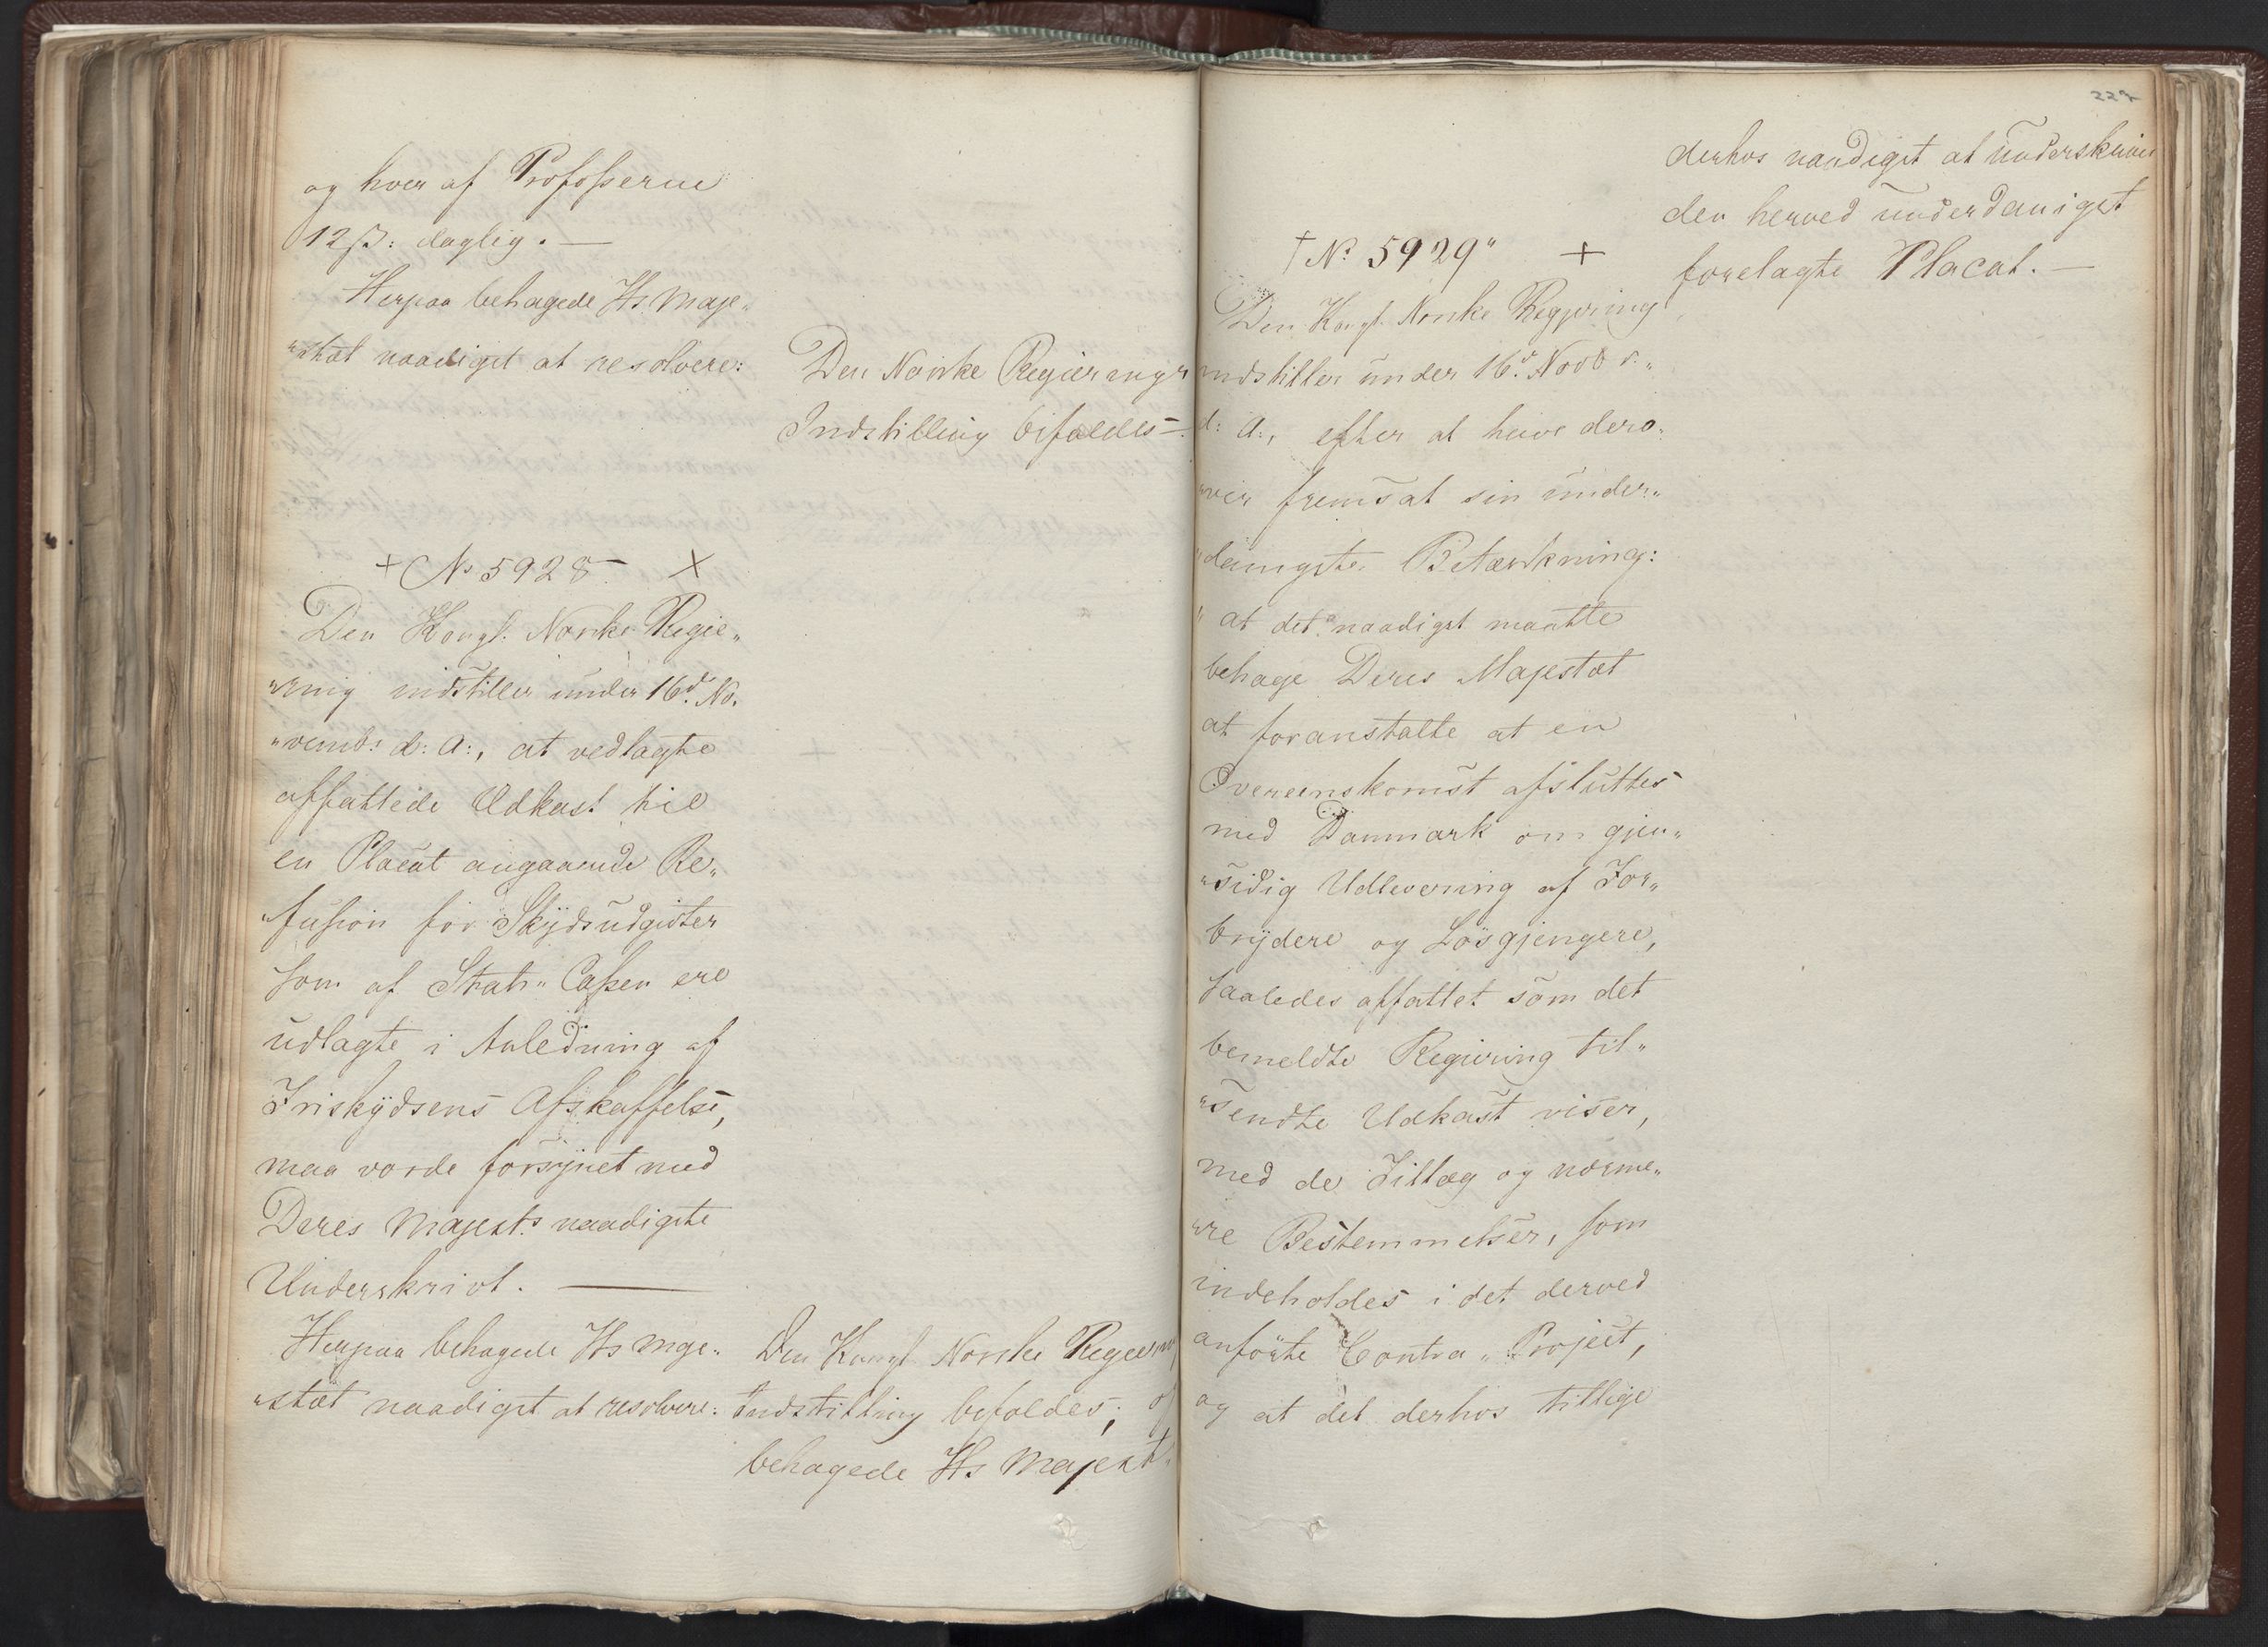 og hver af Profosserne
12 ß: daglig. —
Herpaa behagede Hs. Maje„
„stæt naadigst at resolvere:
Den Norske Regierings
Indstilling bifaldes —.
+ No 5928 ×
Den Kongl. Norske Regie„
„ring indstiller under 16d. No„
„vemb: d: A:, at vedlagte
affattede Udkast til
en Placat angaaende Re„
„fusion for Skydsudgivter
som af Stats„ Cassen ere
udlagte i Anledning af
Friskydsens Afskaffelse,
maa vorde forsynet med
Deres Majests naadigste
Underskrivt. —
Herpaa behagede Hs Maje„
„stæt naadigst at resolvere:
Den Kongl. Norske Regierings
Indstilling bifaldes; og
behagede Hs Majest.
227
derhos naadigst at underskrive
den herved underdanigst
forelagte Placat. —
† No 5929" +
Den Kongl. Norske Regjering
indstiller under 16d. Novbr.
d: A:, efter at have dero„
„ver fremsat sin under„
„danigste Betænkning:
" at det naadigst maatte
behage Deres Majestæt
at foranstalte at en
Overeenskomst afsluttes
med Danmark om gjen„
„sidig Udlevering af For„
brydere og Løsgjengere,
saaledes affattet som det
bemeldte Regiering til„
„sendte Udkast viser,
med de Tillæg og nærme„
„re Bestemmelser, som
indeholdes i det derved
anförte Contra „ Project,
og at det derhos tillige